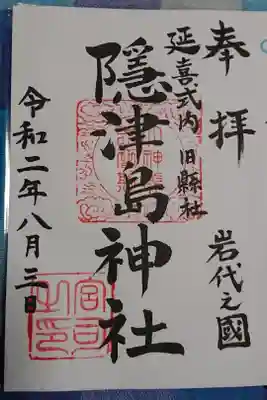 奉拝
岩代之國
延喜式内 旧縣社
隠津島神社
令和二年八月三日
宮司之印